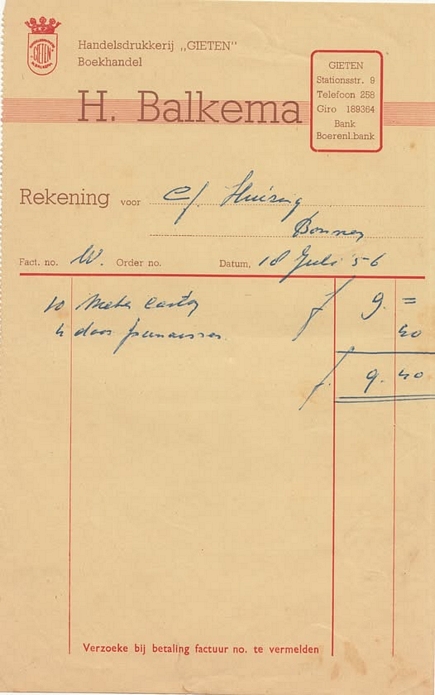 GIETEN
Handelsdrukkerij „GIETEN"
Boekhandel
H. Balkema
GIETEN
Stationsstr. 9
Telefoon 258
Giro 189364
Bank
Boerenl.bank
Rekening voor Huizing
Bonnen
Fact. no. W. Order no. Datum, 18 Juli '56
10 Meter f 9. =
4 doos punaises 40
f. 9. 40
Verzoeke bij betaling factuur no. te vermelden